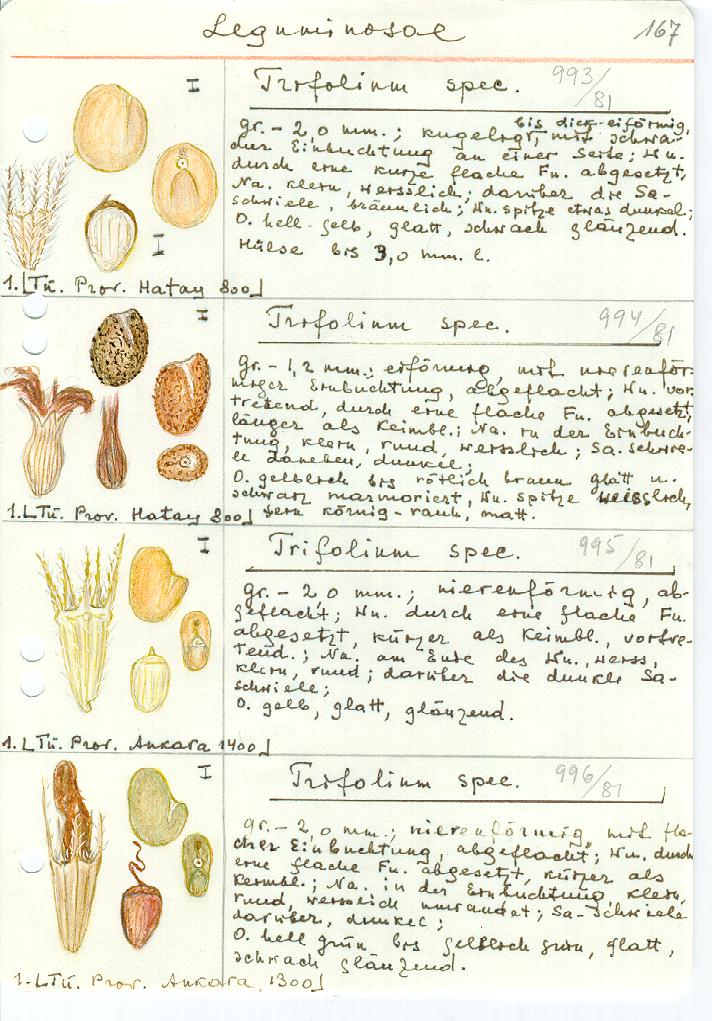 Leguminosae
167
I
Trifolium spec.
993/81
bis dick-eiförmig,
gr. - 2,0 mm.; kugelogt, mit schwa-
cher Einbuchtung an einer Seite; Wu.
durch eine kurze flache Fu. abgesetzt,
Na. klein, weisslich; darüber die Sa-
schwiele, bräunlich; Wu. spitze etwas dunkel;
O. hell-gelb, glatt, schwach glänzend.
Hülse bis 3,0 mm. l.
I
1. [Tü. Prov. Hatay 800]
I
Trifolium spec.
994/81
gr. - 1,2 mm.; eiförmig, mit nierenför-
miger Einbuchtung, abgeflacht; Wu. vor-
tretend, durch eine flache Fu. abgesetzt,
länger als Keimbl.; Na. in der Einbuch-
tung, klein, rund, weisslich; Sa. schwie-
le daneben, dunkel;
O. gelblich bis rötlich braun glatt u.
schwarz marmoriert, Wu. spitze weisslich,
fein körnig-rauh, matt.
1. [Tü. Prov. Hatay 800]
I
Trifolium spec.
995/81
gr. - 2,0 mm.; nierenförmig, ab-
geflacht; Wu. durch eine flache Fu.
abgesetzt, kürzer als Keimbl., vortre-
tend.; Na. am Ende des Wu., weiss,
klein, rund; darüber die dunkle Sa-
schwiele;
O. gelb, glatt, glänzend.
1. [Tü. Prov. Ankara 1400]
I
Trifolium spec.
996/81
gr. - 2,0 mm.; nierenförmig, mit fla-
cher Einbuchtung, abgeflacht; Wu. durch
eine flache Fu. abgesetzt, kürzer als
Keimbl.; Na. in der Einbuchtung, klein,
rund, weisslich umrandet; Sa-schwiele
darüber, dunkel;
O. hell grün bis gelblich grün, glatt,
schwach glänzend.
1. [Tü. Prov. Ankara, 1300]